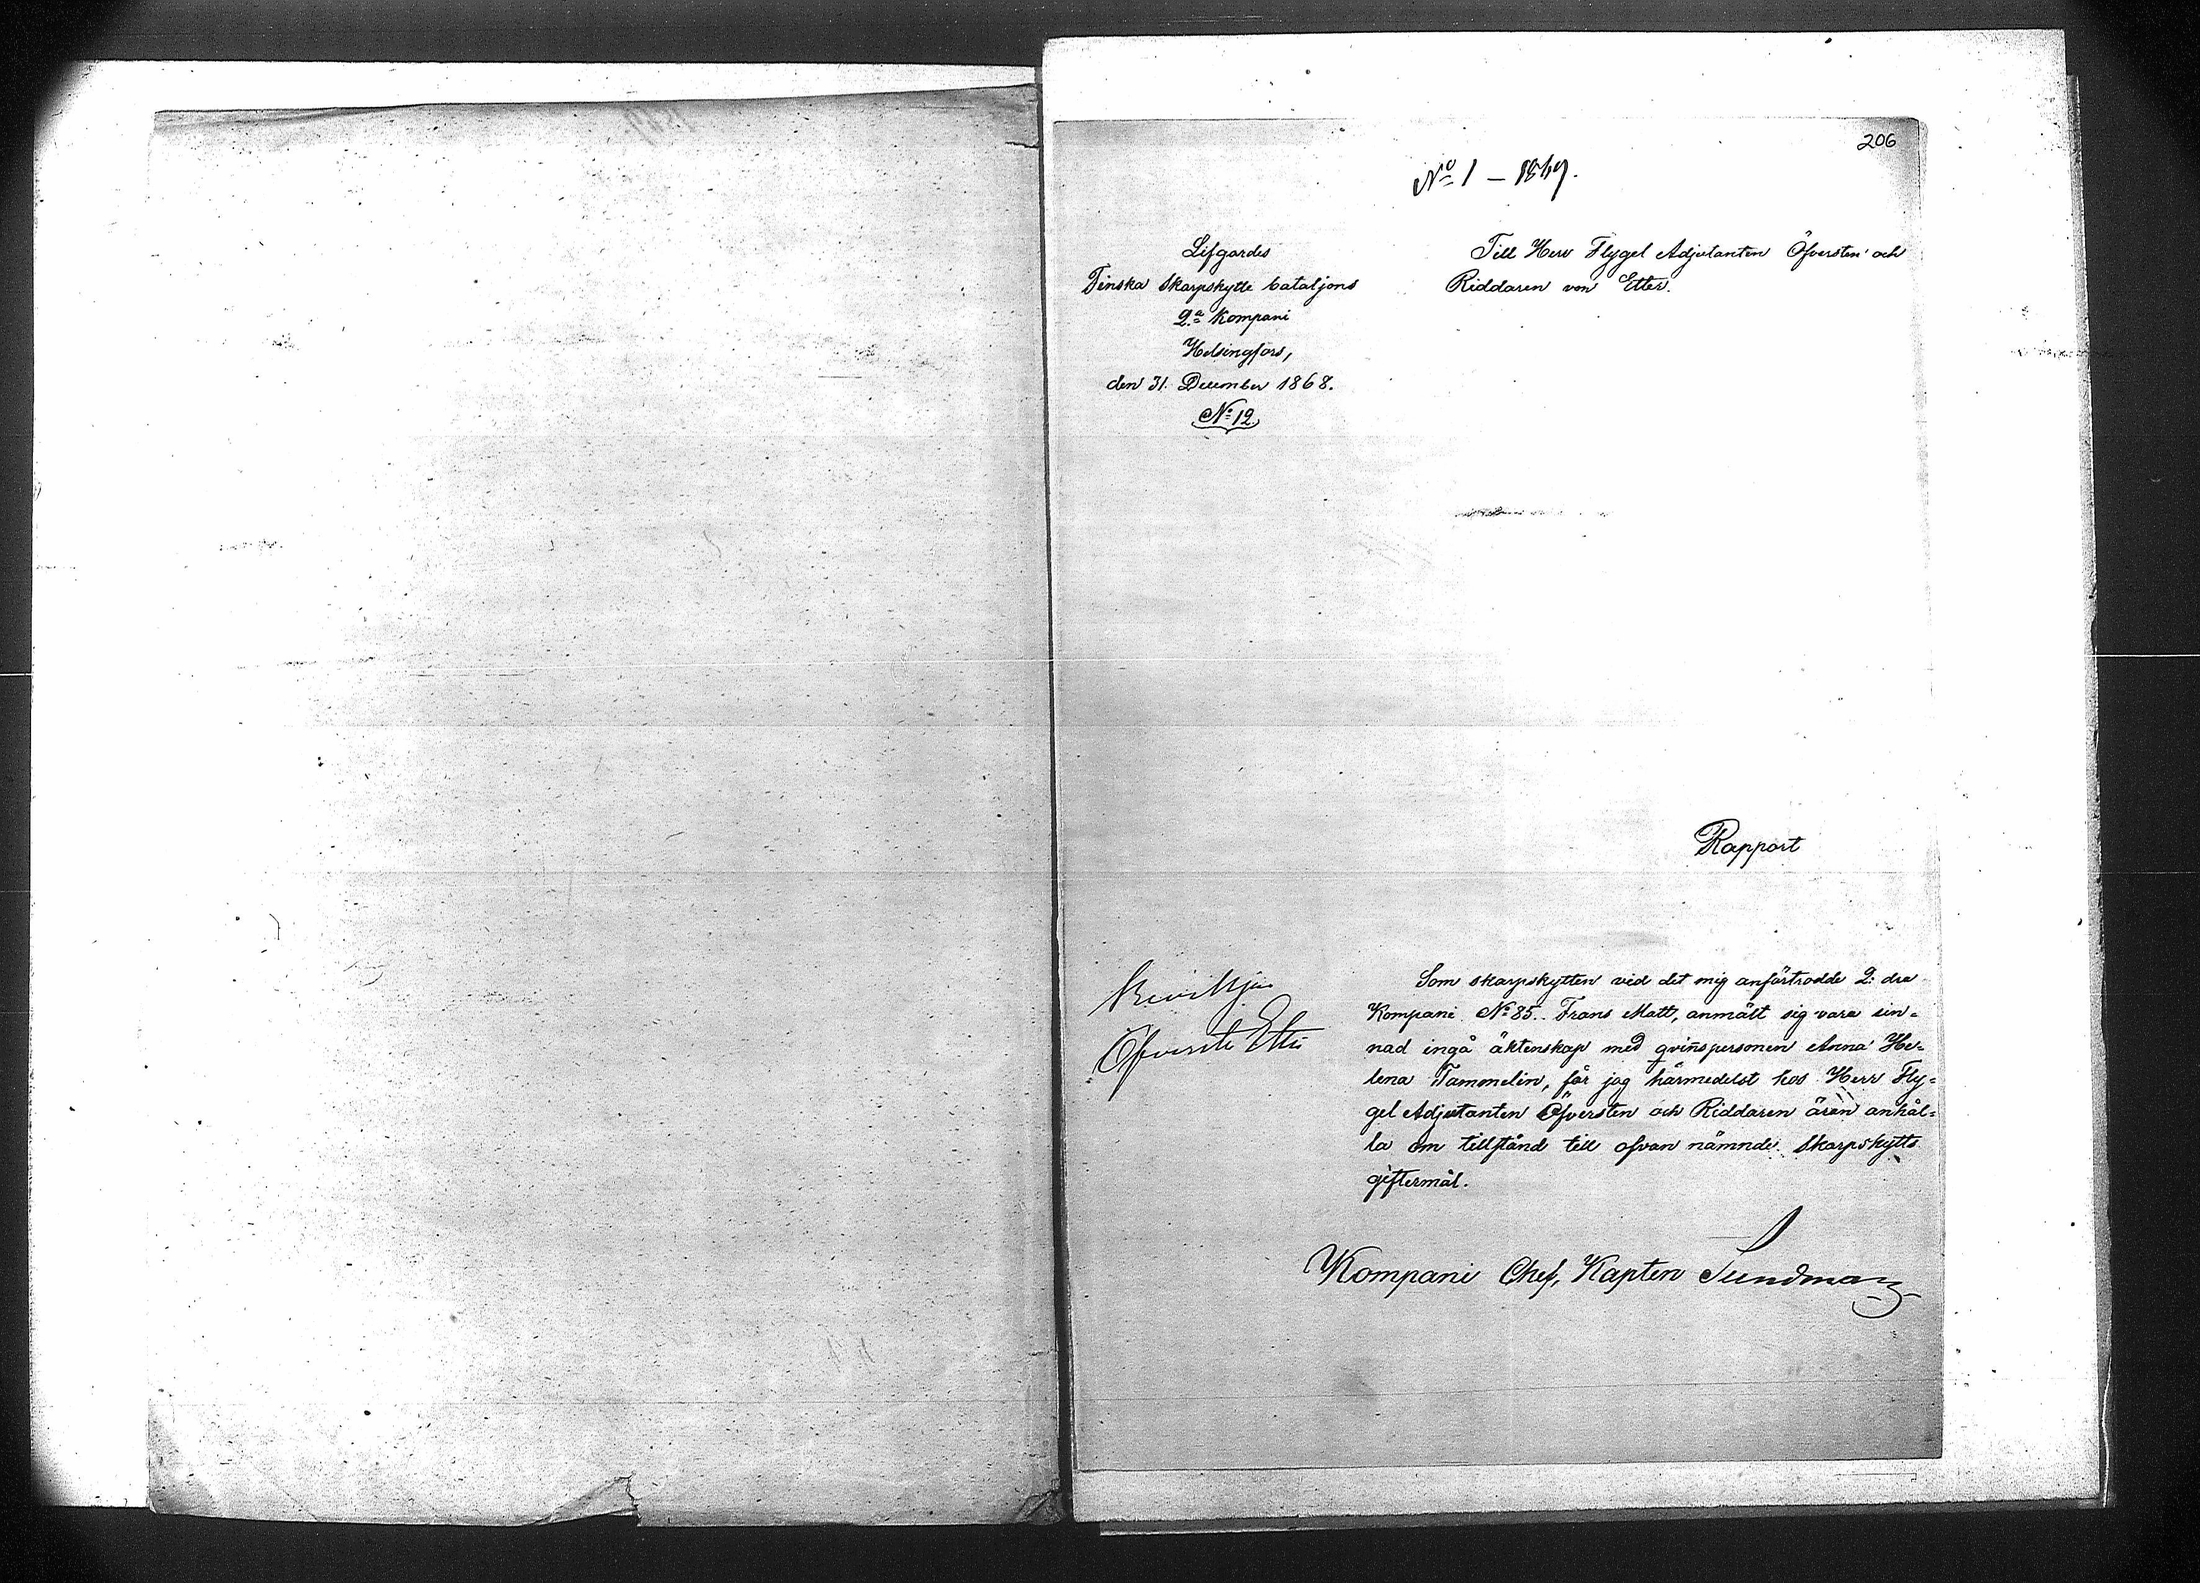 206
No 1 – 1869.
Lifgardes
Finska Skarpskytte bataljons
2:a Kompani
Helsingfors,
den 31. December 1868.
No 12.
Till Herr Flygel Adjutanten Öfversten och
Riddaren von Etter.
Rapport
Beviljas
Öfverste Etter
Som skarpskytten vid det mig anförtrodde 2:dra
Kompani No 85. Frans Matt, anmält sig vara sin=
nad ingå äktenskap med qvinspersonen Anna He=
lena Tammelin, får jag härmedelst hos Herr Fly=
gel Adjutanten Öfversten och Riddaren äran anhål=
la om tillstånd till ofvan nämnde Skarpskytts
giftermål.
Kompani Chef, Kapten Sundman